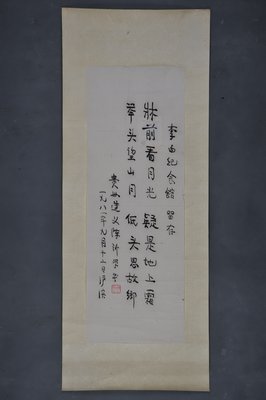 李白纪念馆 留存
牀前看月光 疑是地上霜
举头望山月 低头思故乡
贵州遵义陈沂
一九八二年九月十二日